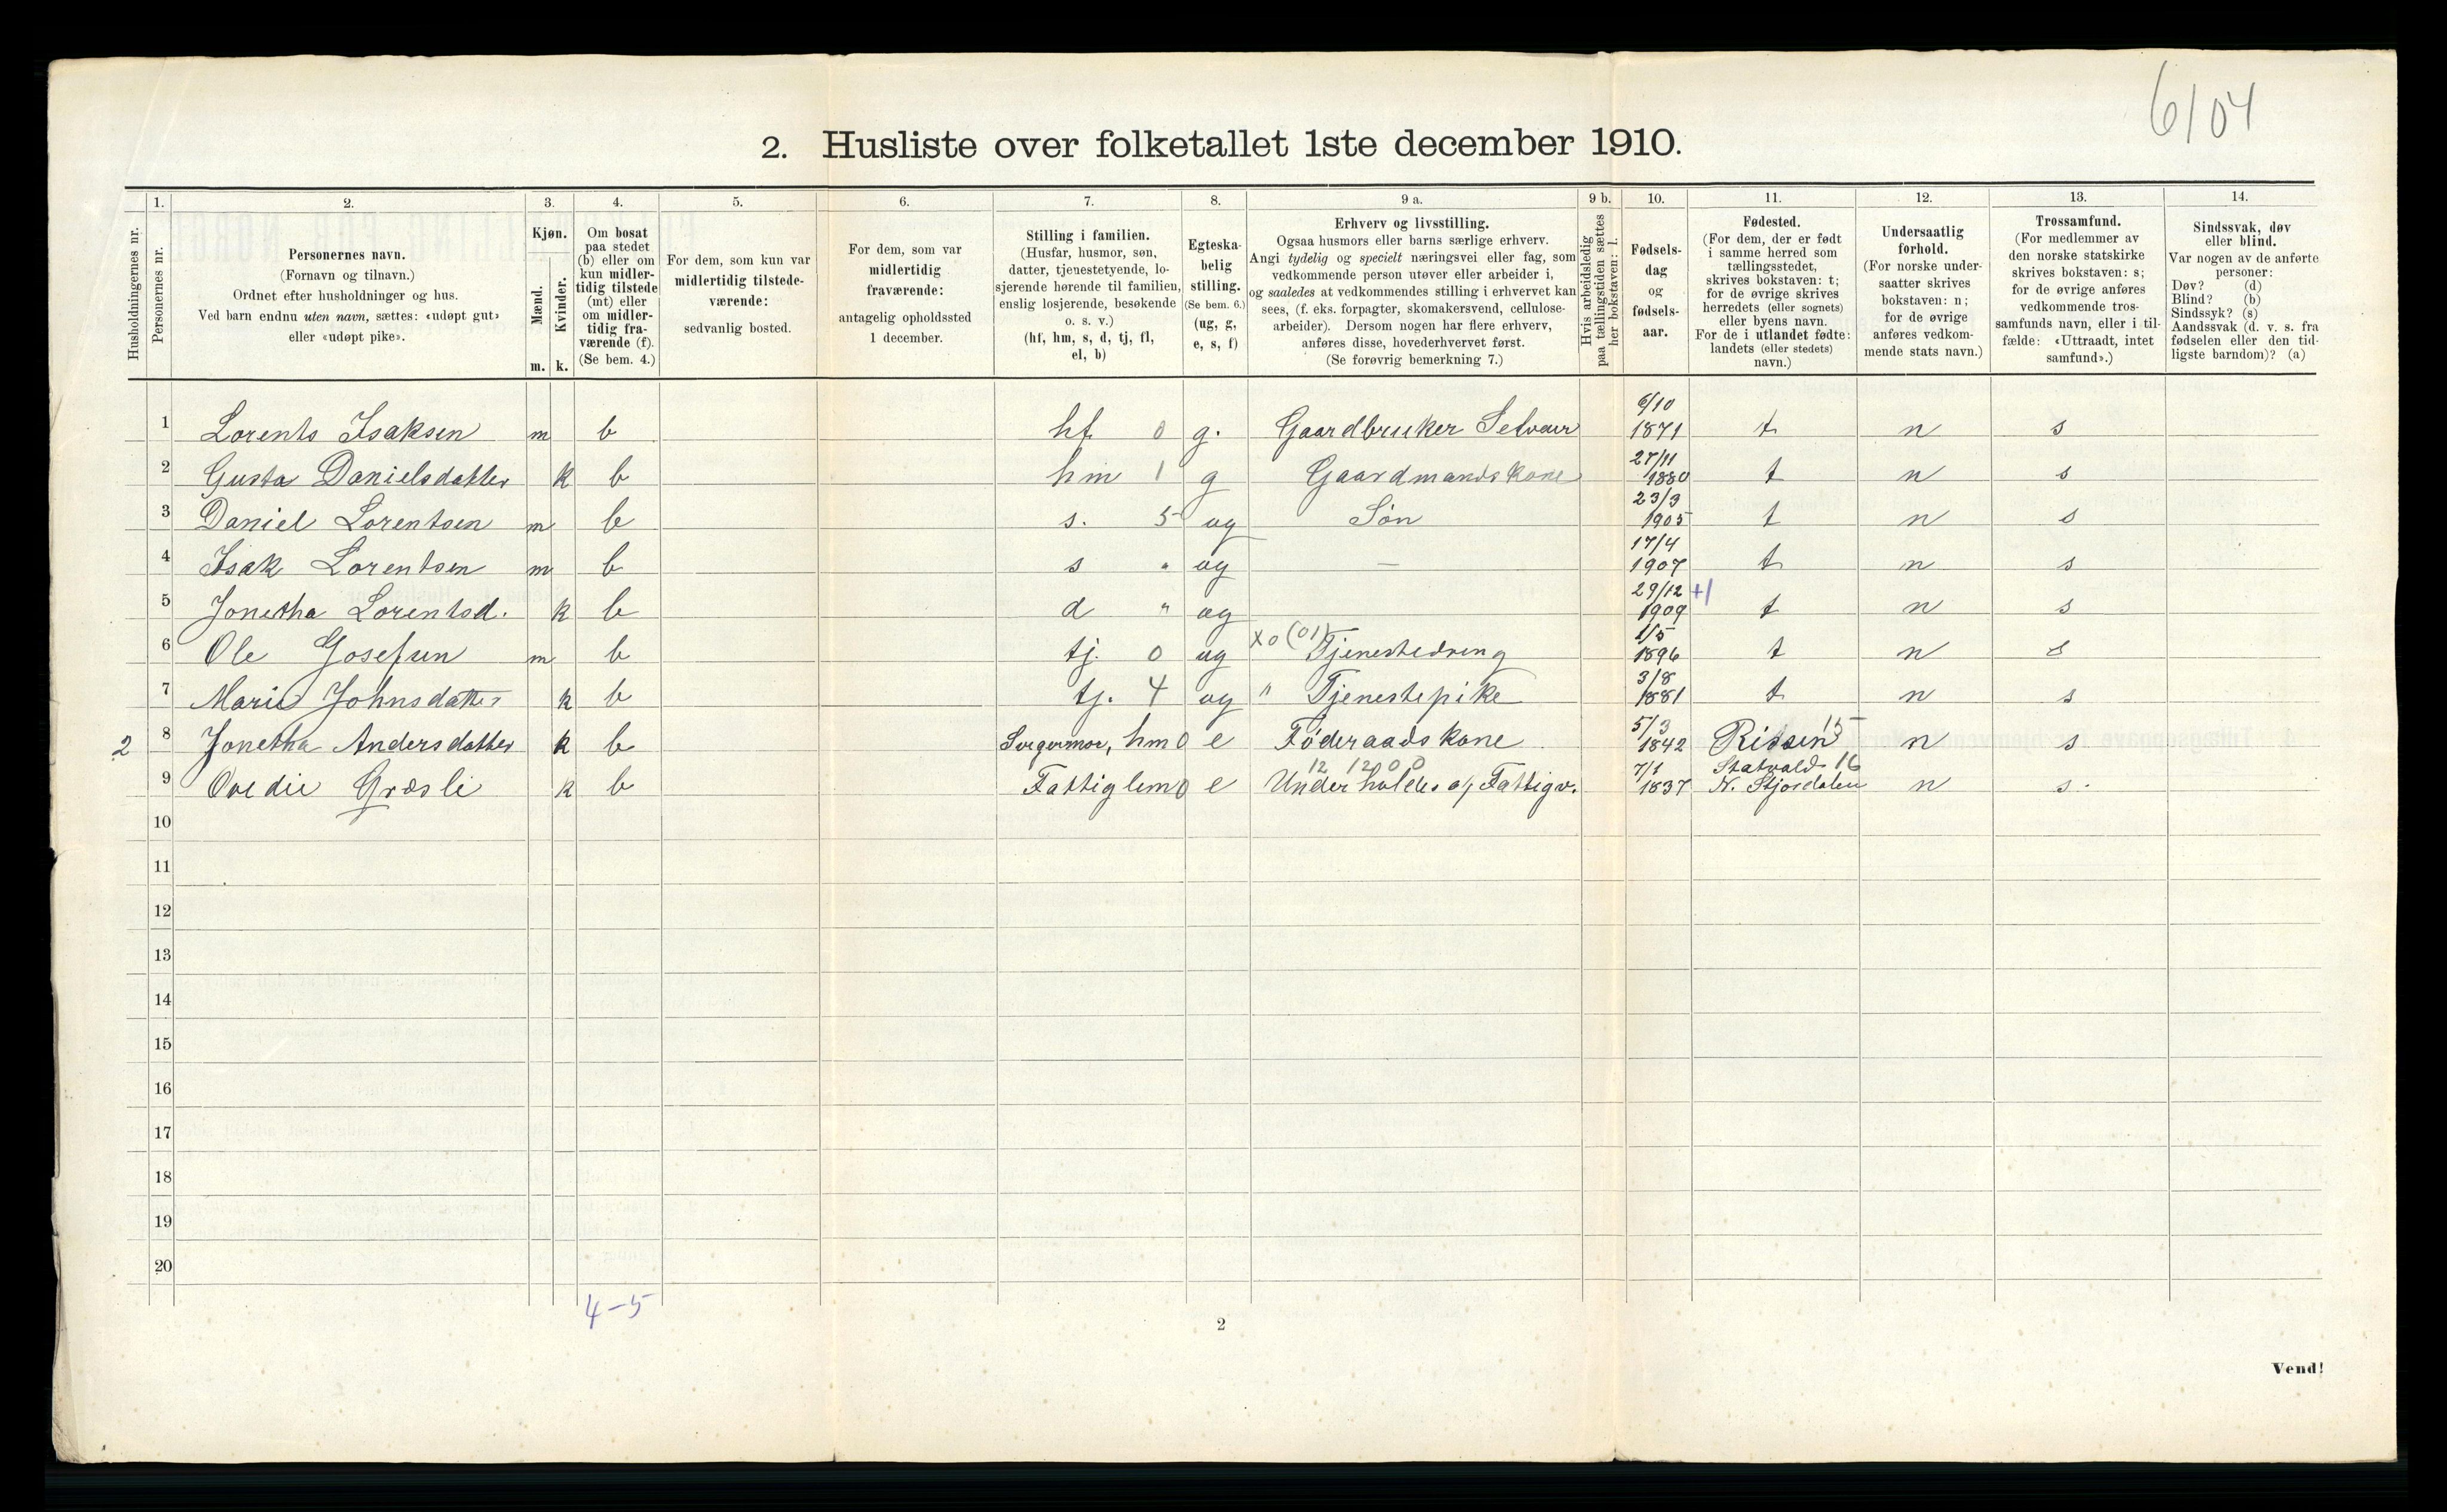 6/04
2. Husliste over folketallet 1ste december 1910.
Husholdningernes nr.
1.
Personernes nr.
2.
Personernes navn.
(Fornavn og tilnavn.)
Ordnet efter husholdninger og hus.
Ved barn endnu uten navn, sættes: «udøpt gut»
eller «udøpt pike».
3.
Kjøn.
Mænd.
Kvinder.
m. k.
4.
Om bosat
paa stedet
(b) eller om
kun midler-
tidig tilstede
(mt) eller
om midler-
tidig fra-
værende (f).
(Se bem. 4.)
5.
For dem, som kun var
midlertidig tilstede-
værende:
sedvanlig bosted.
6.
For dem, som var
midlertidig
fraværende:
antagelig opholdssted
1 december.
7.
Stilling i familien.
(Husfar, husmor, søn,
datter, tjenestetyende, lo-
sjerende hørende til familien,
enslig losjerende, besøkende
o. s. v.)
(hf, hm, s, d, tj, fl,
el, b)
8.
Egteska-
belig
stilling.
(Se bem. 6.)
(ug, g,
e, s, f)
9 a.
Erhverv og livsstilling.
Ogsaa husmors eller barns særlige erhverv.
Angi tydelig og specielt næringsvei eller fag, som
vedkommende person utøver eller arbeider i,
og saaledes at vedkommendes stilling i erhvervet kan
sees, (f. eks. forpagter, skomakersvend, cellulose-
arbeider). Dersom nogen har flere erhverv,
anføres disse, hovederhvervet først.
(Se forøvrig bemerkning 7.)
9 b.
Hvis arbeidsledig
paa tællingstiden sættes
her bokstaven: l.
10.
Fødsels-
dag
og
fødsels-
aar.
11.
Fødested.
(For dem, der er født
i samme herred som
tællingsstedet,
skrives bokstaven: t;
for de øvrige skrives
herredets (eller sognets)
eller byens navn.
For de i utlandet fødte:
landets (eller stedets)
navn.)
12.
Undersaatlig
forhold.
(For norske under-
saatter skrives
bokstaven: n;
for de øvrige
anføres vedkom-
mende stats navn.)
13.
Trossamfund.
(For medlemmer av
den norske statskirke
skrives bokstaven: s;
for de øvrige anføres
vedkommende tros-
samfunds navn, eller i til-
fælde: «Uttraadt, intet
samfund».)
14.
Sindssvak, døv
eller blind.
Var nogen av de anførte
personer:
Døv? (d)
Blind? (b)
Sindssyk? (s)
Aandssvak (d. v. s. fra
fødselen eller den tid-
ligste barndom)? (a)
1 Lorents Isaksen m b hf 0 g. Gaardbruker Selveier 6/10 1871 t n s
2 Gusta Danielsdatter k b hm 1 g Gaardmandskone 27/11 1880 t n s
3 Daniel Lorentsen m b s. 5 ug Søn 23/3 1905 t n s
4 Isak Lorentsen m b s " ug — 17/4 1907 t n s
5 Jonetha Lorentsd. k b d " ug 29/12 1909 +1 t n s
6 Ole Josefsen m b tj. 0 ug xo (01) Tjenestedreng 1/5 1896 t n s
7 Marie Johnsdatter k b tj. 4 ug " Tjenestepike 3/8 1881 t n s
2 8 Jonetha Andersdatter k b Svigermor, hm 0 e Føderaadskone 5/3 1842 Rissen 15 n s
9 Ovedie Græsli k b Fattiglem 0 e Underholdes af Fattigv. 12 1200 7/1 1837 16 N. Stjørdalen n s.
10
11
12
13
14
15
16
17
18
19
20
4-5
2
Vend!